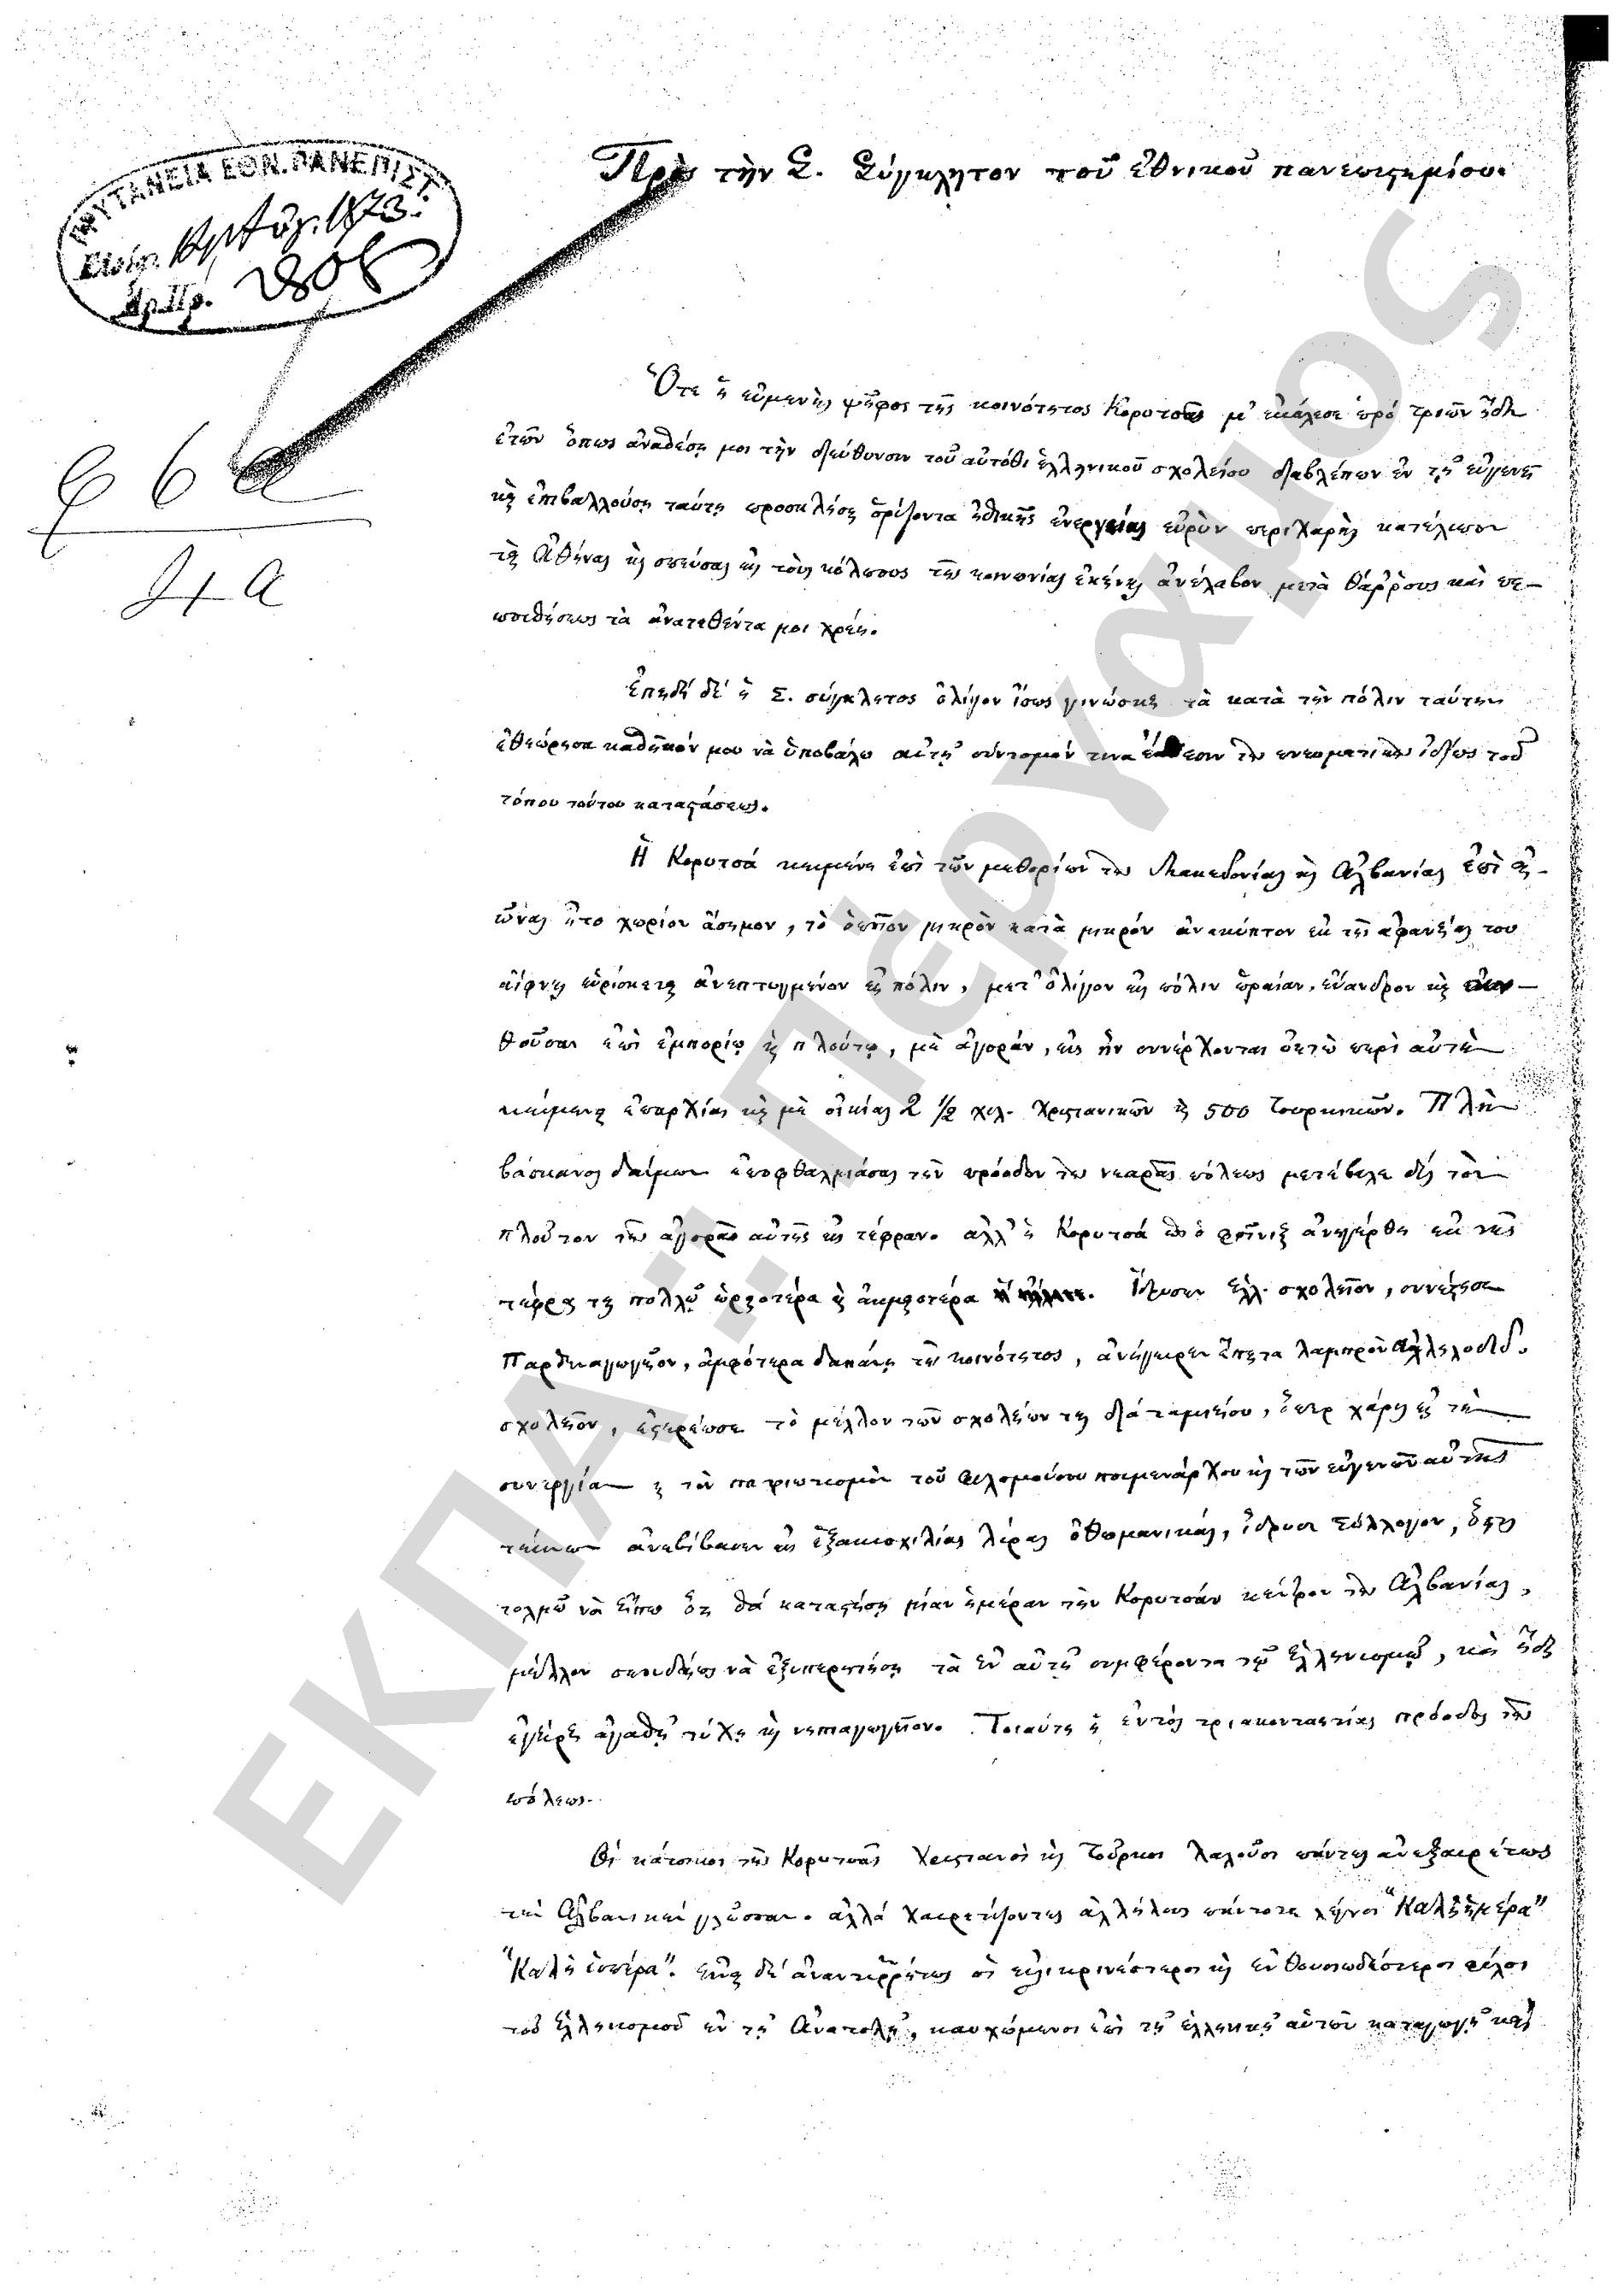 ΠΡΥΤΑΝΕΙΑ ΕΘΝ. ΠΑΝΕΠΙΣΤ.
1873
Ἀρ. Πρ.
Πρὸς τὴν Σ. Σύγκλητον τοῦ ἐθνικοῦ πανεπιστημίου.
Ὅτε ἡ εὐμενὴς ψῆφος τῆς κοινότητος Κορυτσᾶς μ' ἐκάλεσε πρὸ τριῶν ἤδη
ἐτῶν ὅπως ἀναθέσῃ μοι τὴν διεύθυνσιν τοῦ αὐτόθι ἑλληνικοῦ σχολείου διαβλέπων ἐν τῇ εὐγενεῖ
καὶ ἐπιβαλλούσῃ ταύτῃ προσκλήσει ὁρίζοντα ἠθικῆς ἐνεργείας εὐρὺν περιχαρὴς κατέλιπον
τὰς Ἀθήνας καὶ σπεύσας εἰς τοὺς κόλπους τῆς κοινωνίας ἐκείνης ἀνέλαβον μετὰ θάῤῥους καὶ πε-
ποιθήσεως τὰ ἀνατεθέντα μοι χρέη.
Ἐπειδὴ δὲ ἡ Σ. σύγκλητος ὀλίγον ἴσως γινώσκει τὰ κατὰ τὴν πόλιν ταύτην
ἐθεώρησα καθῆκόν μου νὰ ὑποβάλω αὐτῇ σύντομόν τινα ἔκθεσιν τῆς πνευματικῆς ἰδίως τοῦ
τόπου τούτου καταστάσεως.
Ἡ Κορυτσά κειμένη ἐπὶ τῶν μεθορίων τῆς Μακεδονίας καὶ Ἀλβανίας ἐπὶ αἰ-
ῶνας ἦτο χωρίον ἄσημον, τὸ ὁποῖον μικρὸν κατὰ μικρὸν ἀνακύπτον ἐκ τῆς ἀφανείας του
αἴφνης εὑρίσκεται ἀνεπτυγμένον εἰς πόλιν, μετ' ὀλίγον εἰς πόλιν ὡραίαν, εὔανδρον καὶ
θοῦσαν ἐπὶ ἐμπορίῳ καὶ πλούτῳ, μὲ ἀγοράν, εἰς ἣν συνέρχονται ὀκτὼ περὶ αὐτὴν
κείμεναι ἐπαρχίαι καὶ μὲ οἰκίας 2 1/2 χιλ. Χριστιανικῶν καὶ 500 Τουρκικῶν. Πλὴν
βάσκανος δαίμων ἐποφθαλμιάσας τὴν πρόοδον τῆς νεαρᾶς πόλεως μετέβαλε δὶς τὸν
πλοῦτον τῆς ἀγορᾶς αὐτῆς εἰς τέφραν. ἀλλ' ἡ Κορυτσά ὡς ὁ φοῖνιξ ἀνηγέρθη ἐκ τῆς
τέφρας της πολλῷ ὡραιοτέρα καὶ ἀκμαιοτέρα. Ἵδρυσεν Ἑλλ. σχολεῖον, συνέστησε
Παρθεναγωγεῖον, ἀμφότερα δαπάνῃ τῆς κοινότητος, ἀνήγειρεν ἔπειτα λαμπρὸν Ἀλληλοδιδ.
σχολεῖον, ἐστερέωσε τὸ μέλλον τῶν σχολείων της διὰ ταμείου, ὅπερ χάρις εἰς τὴν
συνεργίαν καὶ τὸν πατριωτισμὸν τοῦ φιλομούσου ποιμενάρχου καὶ τῶν εὐγενῶν αὐτῆς
τέκνων ἀνεβίβασεν εἰς ἑξακισχιλίας λίρας ὀθωμανικάς, ἵδρυσε Σύλλογον, ὅστις
τολμῶ νὰ εἴπω ὅτι θὰ καταστήσῃ μίαν ἡμέραν τὴν Κορυτσάν κέντρον τῆς Ἀλβανίας,
μέλλον σπουδαίως νὰ ἐξυπηρετήσῃ τὰ ἐν αὐτῇ συμφέροντα τοῦ ἑλληνισμοῦ, καὶ ἤδη
ἐγείρει ἀγαθῇ τύχῃ καὶ νηπιαγωγεῖον. Τοιαύτη ἡ ἐντὸς τριακονταετίας πρόοδος τῆς
πόλεως.
Οἱ κάτοικοι τῆς Κορυτσᾶς Χριστιανοὶ καὶ Τοῦρκοι λαλοῦσι πάντες ἀνεξαιρέτως
τὴν Ἀλβανικὴν γλῶσσαν. ἀλλὰ χαιρετίζοντες ἀλλήλους πάντοτε λέγουσι "Καλὴ ἡμέρα"
"Καλὴ ἑσπέρα". εἶναι δὲ ἀναντιῤῥήτως οἱ εἰλικρινέστεροι καὶ ἐνθουσιωδέστεροι φίλοι
τοῦ ἑλληνισμοῦ ἐν τῇ Ἀνατολῇ, καυχώμενοι ἐπὶ τῇ ἑλληνικῇ αὐτῶν καταγωγῇ καὶ
ΕΚΠΑ: Πέργαμος